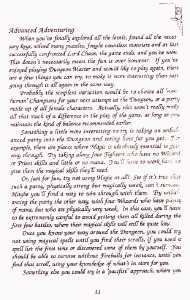 Advanced Adventuring
When you've finally explored all the levels, found all the necessary keys, solved many puzzles, fought countless monsters and at last successfully confronted Lord Chaos, the game ends, and you've won. This doesn't necessarily mean the fun is over however. If you've enjoyed playing Dungeon Master and would like to play again, there are a few things you can try, to make it more interesting than just going through it all again in the same way.
Probably the simplest variation would be to choose all
Champions for your next attempt at the Dungeon, or a party made up of all female characters. Actually, this won't really make all that much of a difference in the play of the game, as long as you maintain the kind of balance recommended earlier.
Something a little more interesting to try, is taking an unbalanced party into the Dungeon and seeing how far you get. For example, there are places where Magic is absolutely essential to
way through. Try taking along four Fighters who have no Wizard or Priest skills and little or no mana. You'll have to work hard to give them the magical skills they'll need.
Or, just for fun, try not using Magic at all. See if it's true that such a party, physically strong but magically weak, can't survive. Maybe you'll find a way to take them through with them. Try unbalancing the party the other way, with four Wizards who have plenty of mana, but who are physically weak. In this case, you'll have to be extremely careful to avoid getting them all killed during the first few battles, where their magical skills will still be quite low.
Once you know your way around the Dungeon, you could try not using magical spells until you find their scrolls. If you need a spell for the first time or discovered some of them by yourself. You should be able to survive without Fireballs for instance, until you find that scroll, using your knowledge of what's in store for you.
Something else you could try is a 'pacifist' approach, where you
53